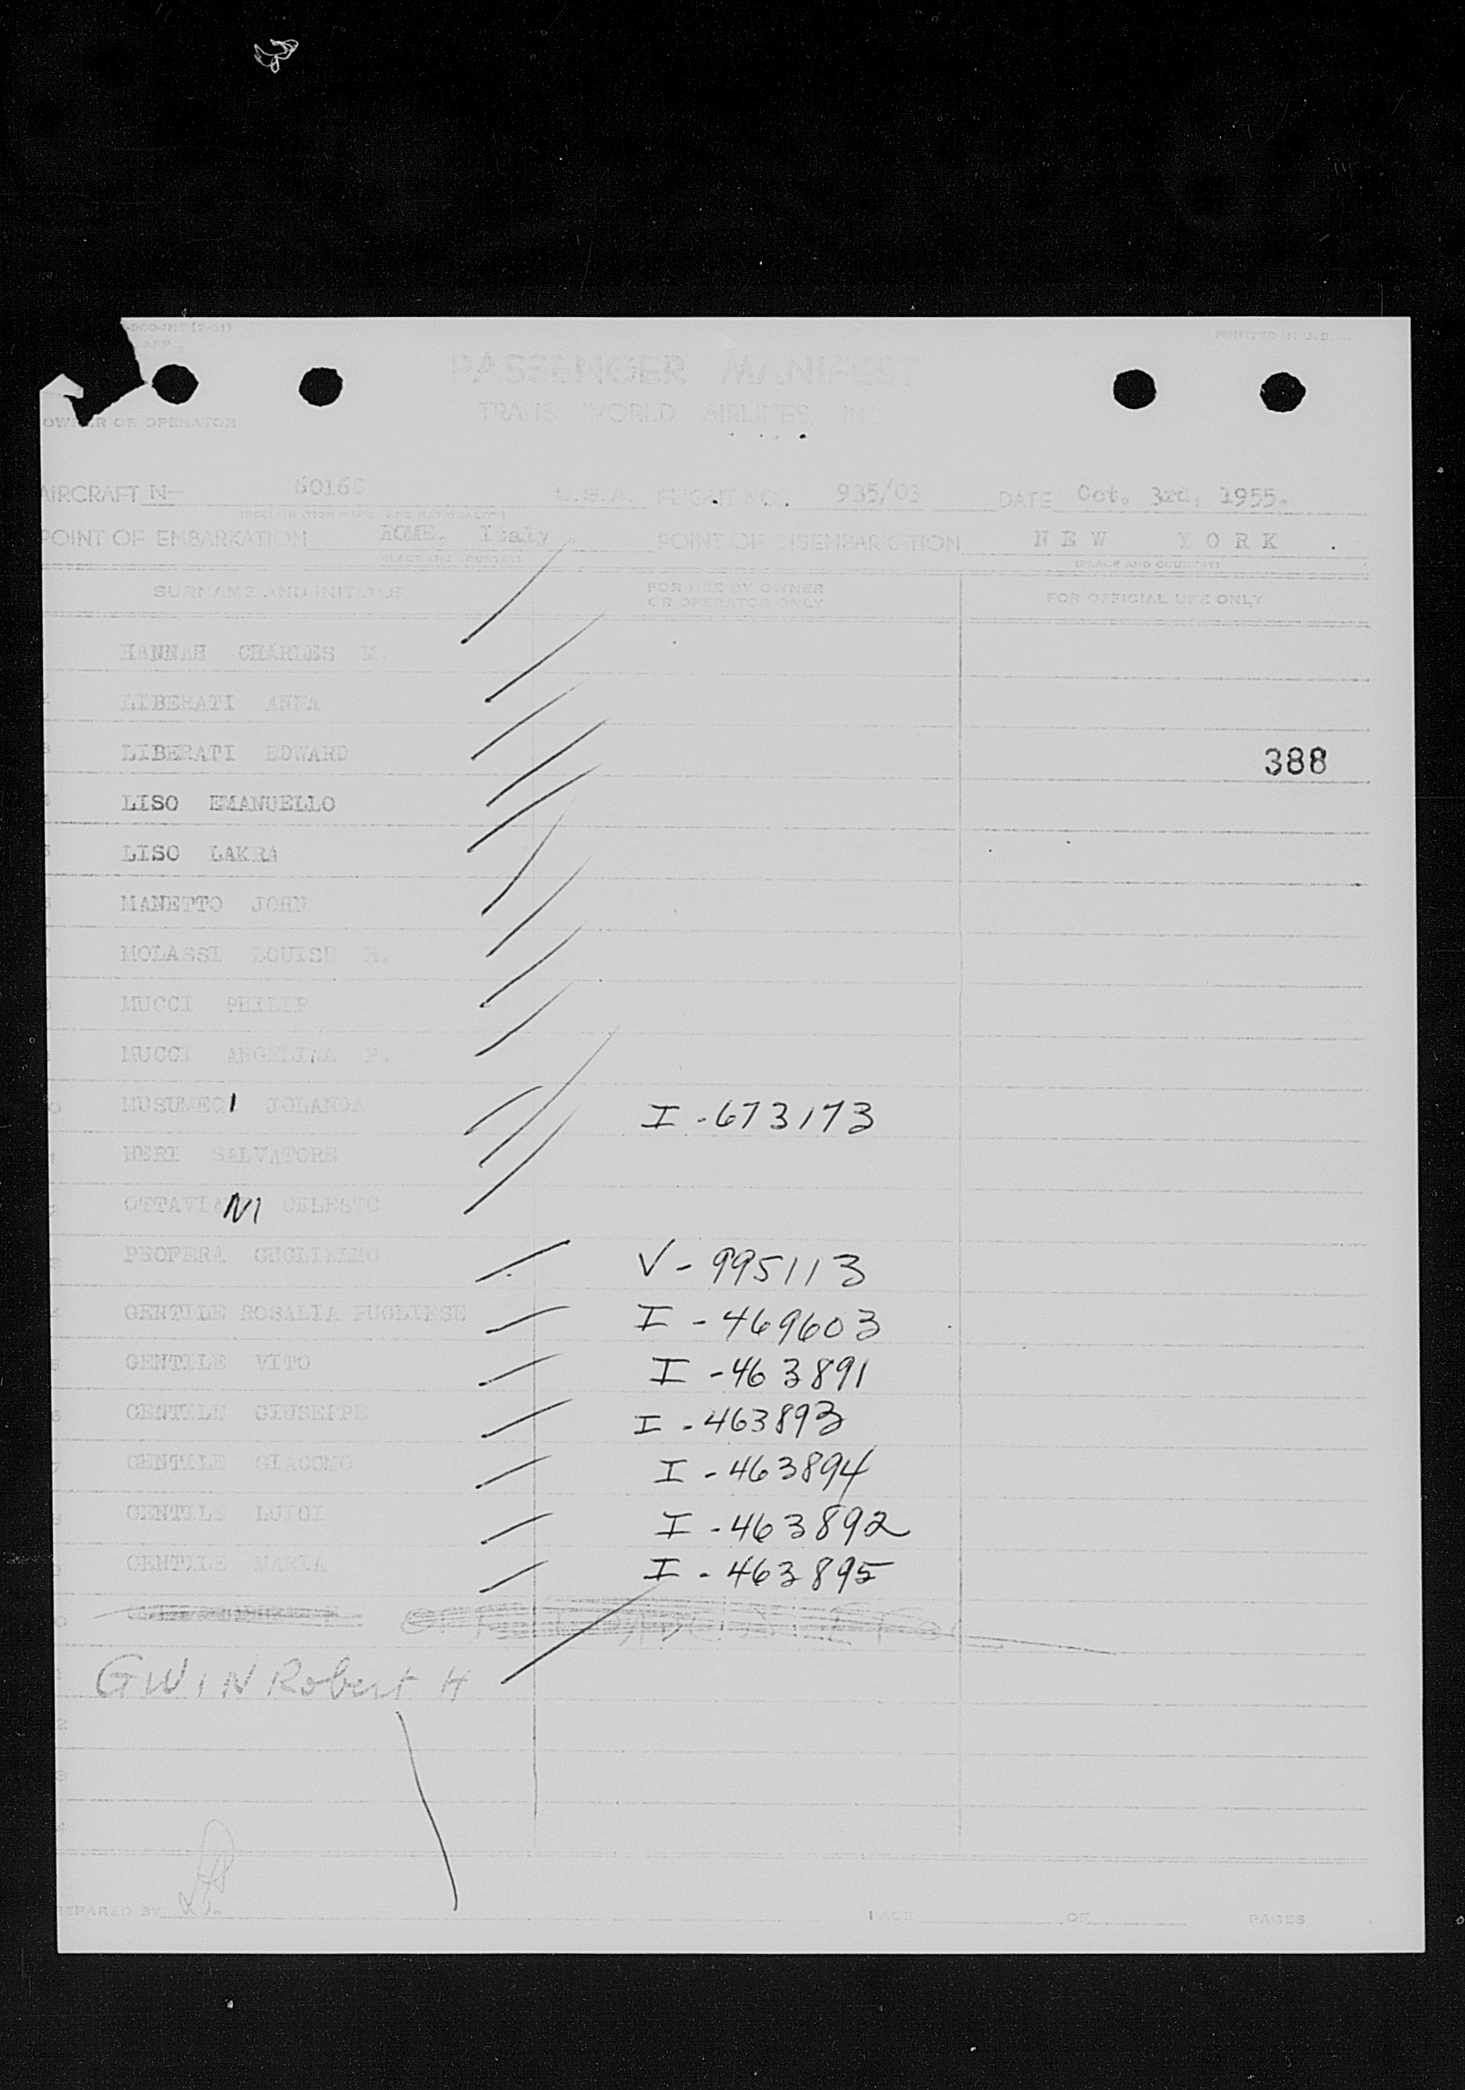 PASSENGER MANIFEST
TRANS WORLD AIRLINES INC
OWNER OR OPERATOR
AIRCRAFT N- 6016C U.S.A. FLIGHT NO. 935/03 DATE Oct. 3rd, 1955.
POINT OF EMBARKATION ROME, Italy POINT OF DISEMBARKATION NEW YORK.
(PLACE AND COUNTRY) (PLACE AND COUNTRY)
SURNAME AND INITIALS FOR USE BY OWNER OR OPERATOR ONLY FOR OFFICIAL USE ONLY
HANNAH CHARLES M.
LIBERATI ANNA
3 LIBERATI EDWARD 388
LISO EMANUELLO
5 LISO LAKRA
MANETTO JOHN
MOLASSI LOUISE
MUCCI PHILIP
MUCCI ANGELINA P.
0 MUSUMECI JOLANDA I-673173
1 NERI SALVATORE
2 OTTAVIANI CELESTO
PROFERA GUGLIELMO V-995113
4 GENTILE ROSALIA PUGLIESE I-469603
5 GENTILE VITO I-463891
6 GENTILE GIUSEPPE I-463893
7 GENTILE GIACOMO I-463894
GENTILE LUIGI I-463892
9 GENTILE MARIA I-463895
0
1 GWIN Robert H
2
3
PREPARED BY PAGE OF PAGES